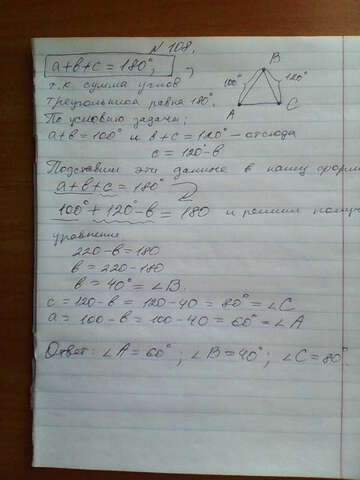 N 108.
a+в+c = 180°,
т.к. сумма углов
треугольника равна 180°.
B
100°
120°
A
C
По условию задачи:
a+в=100° и в+c=120° - отсюда
c = 120°-в
Подставим эти данные в нашу форм
a+в+c = 180°
100°+120°-в = 180 и решим получ
уравнение
220-в=180
в=220-180
в=40°=∠B.
c=120-в=120-40=80°=∠C
a=100-в=100-40=60°=∠A
Ответ: ∠A=60°; ∠B=40°; ∠C=80°